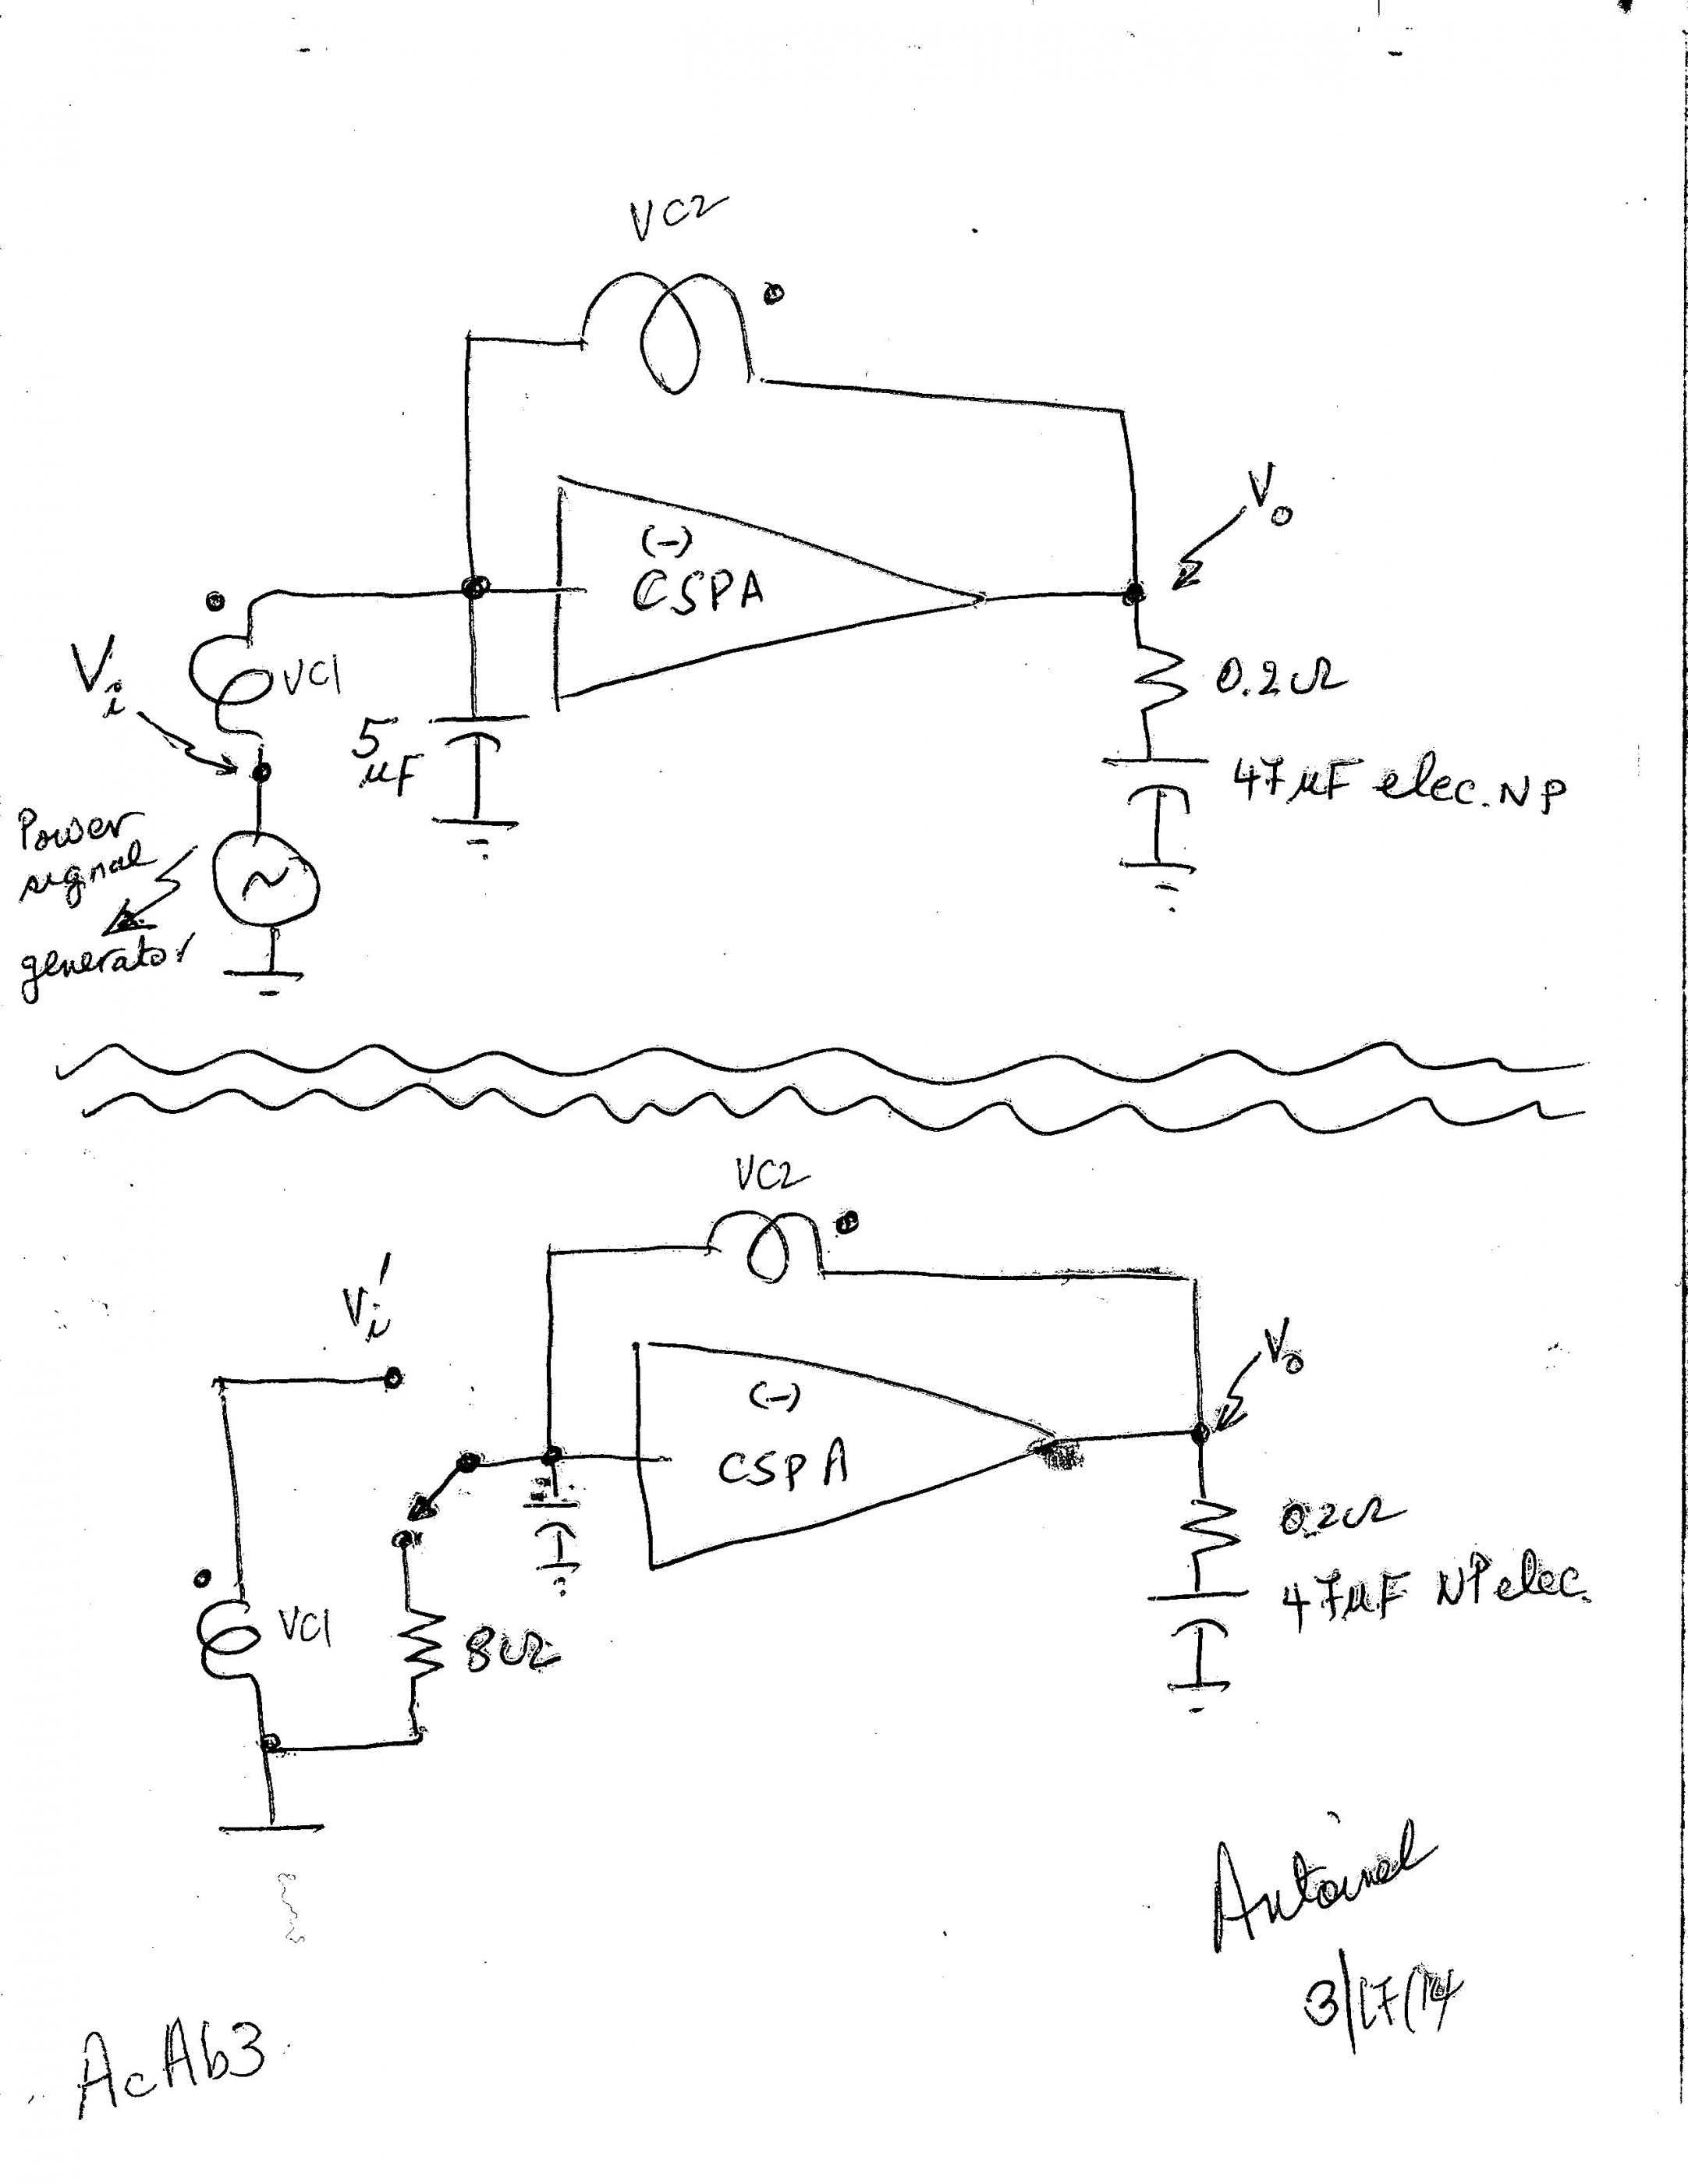 VC2
(-)
CSPA
Vo
Vi
VC1
0.2Ω
5
μF
47μF elec. NP
Power
signal
generator
VC2
Vi'
(-)
CSPA
Vo
0.2Ω
47μF NP elec.
VC1
8Ω
Antoinel
3/17/14
AcAb3